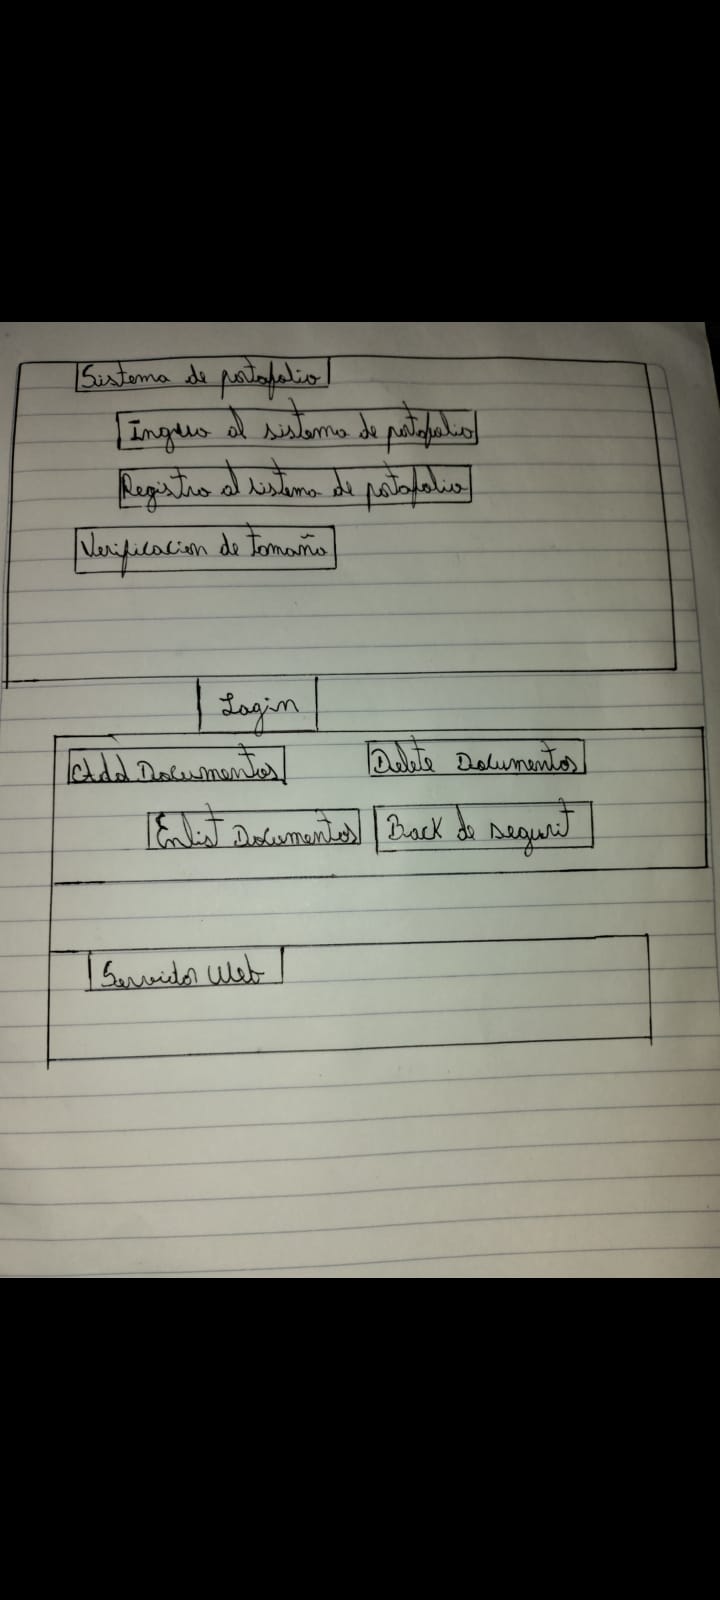 Sistema de portafolio
Ingreso al sistema de portafolio
Registro al sistema de portafolio
Verificacion de tamaño
Login
Add Documentos
Delete Documentos
Enlist Documentos
Back de segurit
Servidor Web